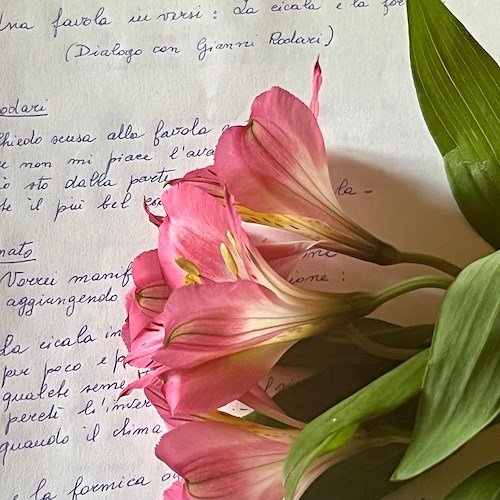 Una favola in versi : La cicala e la for
(Dialogo con Gianni Rodari)
odari
Chiedo scusa alla favola
non mi piace l'ava
io sto dalla parte la-
il più bel
nato
Vorrei manif ni
aggiungendo ione :
La cicala in
per poco e p
qualche seme
perché l'inver
quando il clima
e la formica